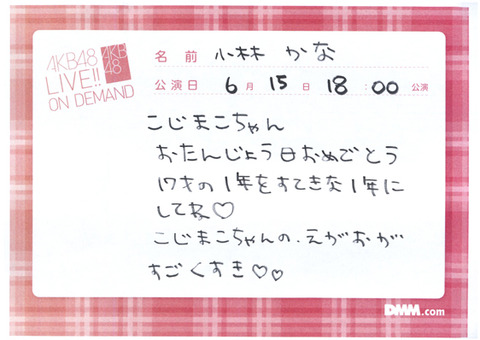 AKB48
LIVE!!
ON DEMAND
AKB
48
名前 小林 かな
公演日 6月15日 18:00 公演
こじまこちゃん
おたんじょう日おめでとう
17才の1年をすてきな1年に
してね♡
こじまこちゃんの、えがおが
すごくすき♡♡
DMM.com